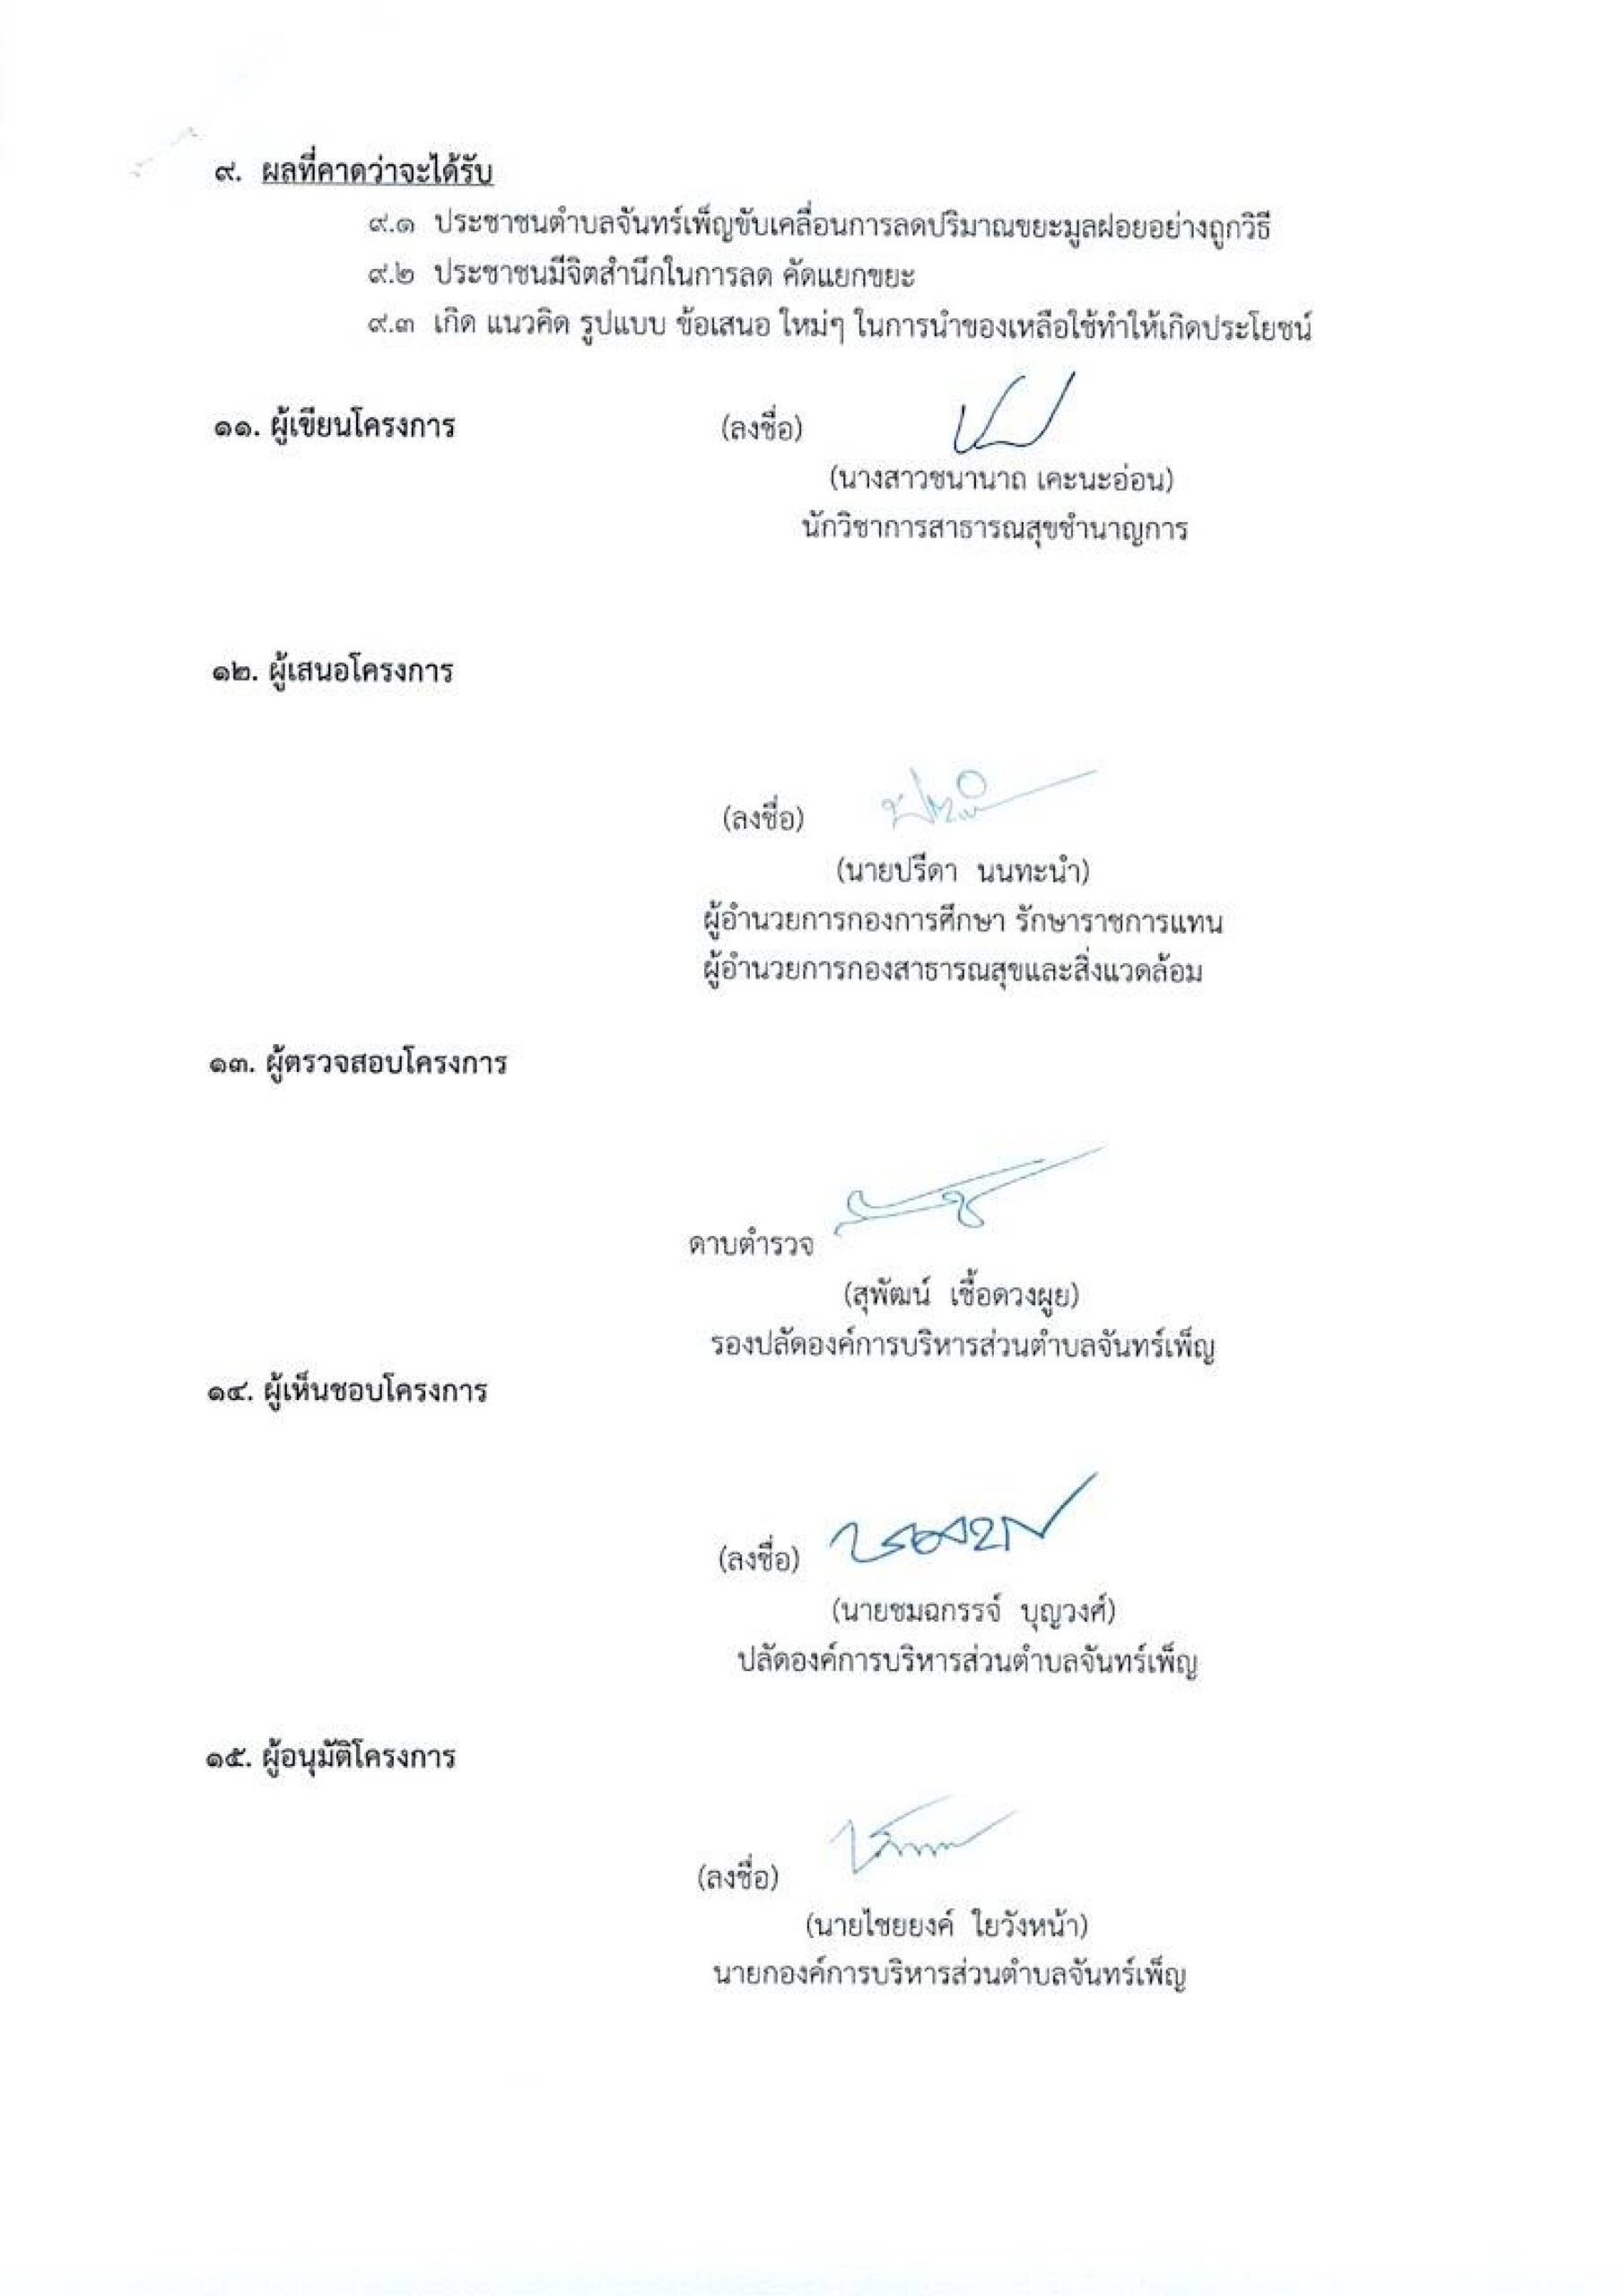 ๙. ผลที่คาดว่าจะได้รับ
๙.๑ ประชาชนตำบลจันทร์เพ็ญขับเคลื่อนการลดปริมาณขยะมูลฝอยอย่างถูกวิธี
๙.๒ ประชาชนมีจิตสำนึกในการลด คัดแยกขยะ
๙.๓ เกิด แนวคิด รูปแบบ ข้อเสนอ ใหม่ๆ ในการนำของเหลือใช้ทำให้เกิดประโยชน์
๑๑. ผู้เขียนโครงการ (ลงชื่อ)
(นางสาวชนานาถ เคะนะอ่อน)
นักวิชาการสาธารณสุขชำนาญการ
๑๒. ผู้เสนอโครงการ
(ลงชื่อ)
(นายปรีดา นนทะนำ)
ผู้อำนวยการกองการศึกษา รักษาราชการแทน
ผู้อำนวยการกองสาธารณสุขและสิ่งแวดล้อม
๑๓. ผู้ตรวจสอบโครงการ
ดาบตำรวจ
(สุพัฒน์ เชื้อดวงผูย)
รองปลัดองค์การบริหารส่วนตำบลจันทร์เพ็ญ
๑๔. ผู้เห็นชอบโครงการ
(ลงชื่อ)
(นายชมฉกรรจ์ บุญวงศ์)
ปลัดองค์การบริหารส่วนตำบลจันทร์เพ็ญ
๑๕. ผู้อนุมัติโครงการ
(ลงชื่อ)
(นายไชยยงค์ ใยวังหน้า)
นายกองค์การบริหารส่วนตำบลจันทร์เพ็ญ